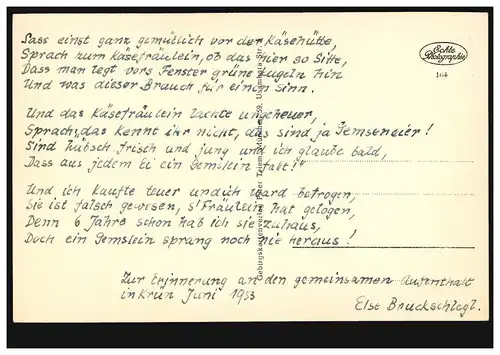 Sass einst ganz gemütlich vor der Käsehütte,
Sprach zum Käsefräulein, ob das hier so Sitte,
Dass man legt vors Fenster grüne Kugeln hin
Und was dieser Brauch für einen Sinn.
Echte
Photographie
164
Und das Käsefräulein lachte ungeheuer,
Sprach: das kennt ihr nicht, das sind ja Gemseneier!
Sind hübsch frisch und jung und ich glaube bald,
Dass aus jedem Ei ein Gemslein fällt!"
Und ich kaufte teuer und ich ward betrogen,
Sie ist falsch gewesen, s'Fräulein hat gelogen,
Denn 6 Jahre schon hab ich sie zuhaus,
Doch ein Gemslein sprang noch nie heraus!
Zur Erinnerung an den gemeinsamen Aufenthalt
in Krün Juni 1953
Else Bruckschlegl.
Gebirgskartenverlag Peter München 59,